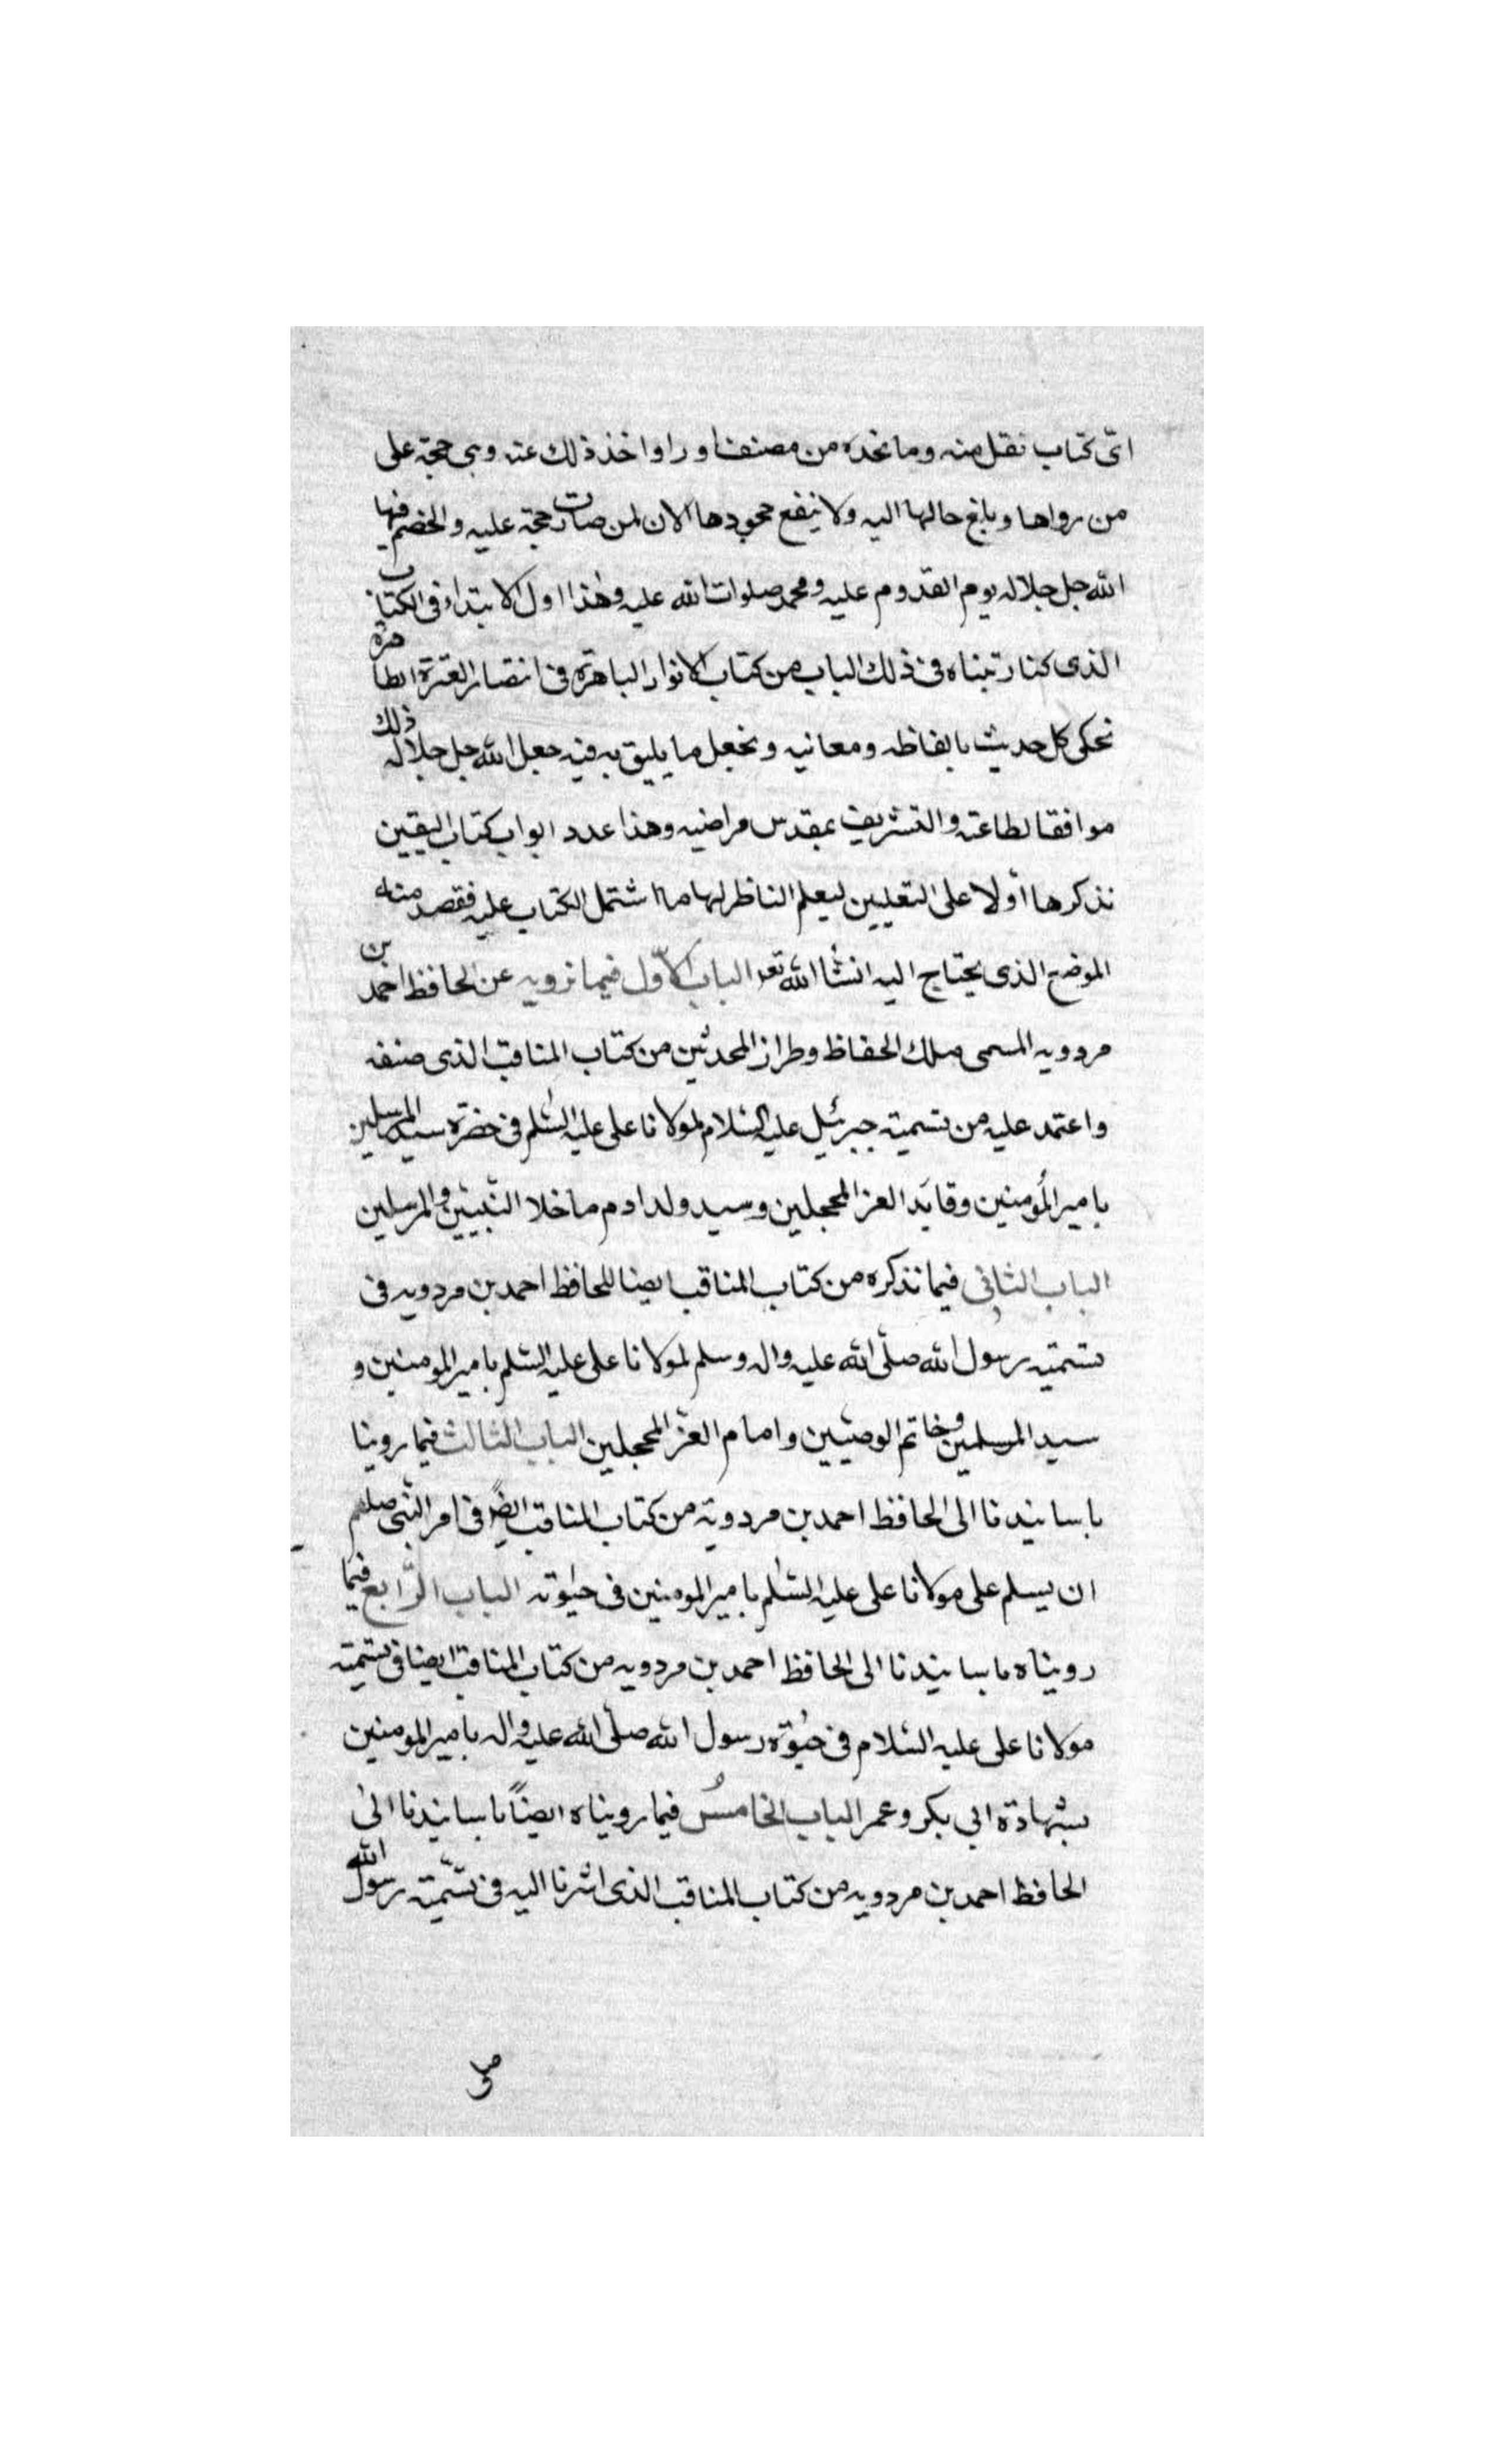 اىّ كتاب نقل منه وما نجده من مصنف او راو اخذ ذلك عنه وهى حجة على
من رواها وبلغ حالها اليه ولا ينفع جحودها الان لمن صارت حجة عليه والخصم فيها
الله جل جلاله يوم القدوم عليه ومحمد صلوات الله عليه وهذا اول الابتداء فى الكتاب
الذى كنا رتبناه فى ذلك الباب من كتاب الانوار الباهرة فى انتصار العترة الطاهرة
نحكى كل حديث بالفاظه ومعانيه ونجعل ما يليق به فيه جعل الله جل جلاله ذلك
موافقا لطاعته والتشريف بمقدس مراضيه وهذا عدد ابواب كتاب اليقين
نذكرها أولا على التعيين ليعلم الناظر لها ما اشتمل الكتاب عليه فقصد منه
الموضع الذى يحتاج اليه انشأ الله تعه الباب الاوّل فيما نرويه عن الحافظ احمد بن
مردويه المسمى ملك الحفاظ وطراز المحدثين من كتاب المناقب الذى صنفه
واعتمد عليه من تسمية جبرئيل عليه السلام لمولانا على عليه السلم فى حضرة سيد المرسلين
بامير المُومنين وقائد الغر المحجلين وسيد ولد ادم ما خلا النّبيين والمرسلين
الباب الثانى فيما نذكره من كتاب المناقب ايضا للحافظ احمد بن مردويه فى
تسمية رسول الله صلّى الله عليه واله وسلم لمولانا على عليه السّلم بامير المومنين و
سيد المرسلين وخاتم الوصيّين وامام الغرّ المحجلين الباب الثالث فيما روينا
باسانيدنا الى الحافظ احمد بن مردوية من كتاب المناقب ايضً فى امر النّبى صلعم
ان يسلم على مولانا على عليه السّلم بامير المومنين فى حيٰوته الباب الرّابع فيما
رويناه باسانيدنا الى الحافظ احمد بن مردويه من كتاب المناقب ايضا فى تسمية
مولانا على عليه السّلام فى حيٰوة رسول الله صلّى الله عليه واله بامير المومنين
بشهادة ابى بكر وعمر الباب الخامسُ فيما رويناه ايضاً باسانيدنا الىٰ
الحافظ احمد بن مردويه من كتاب المناقب الذى اشرنا اليه فى تسّمية رسول الله